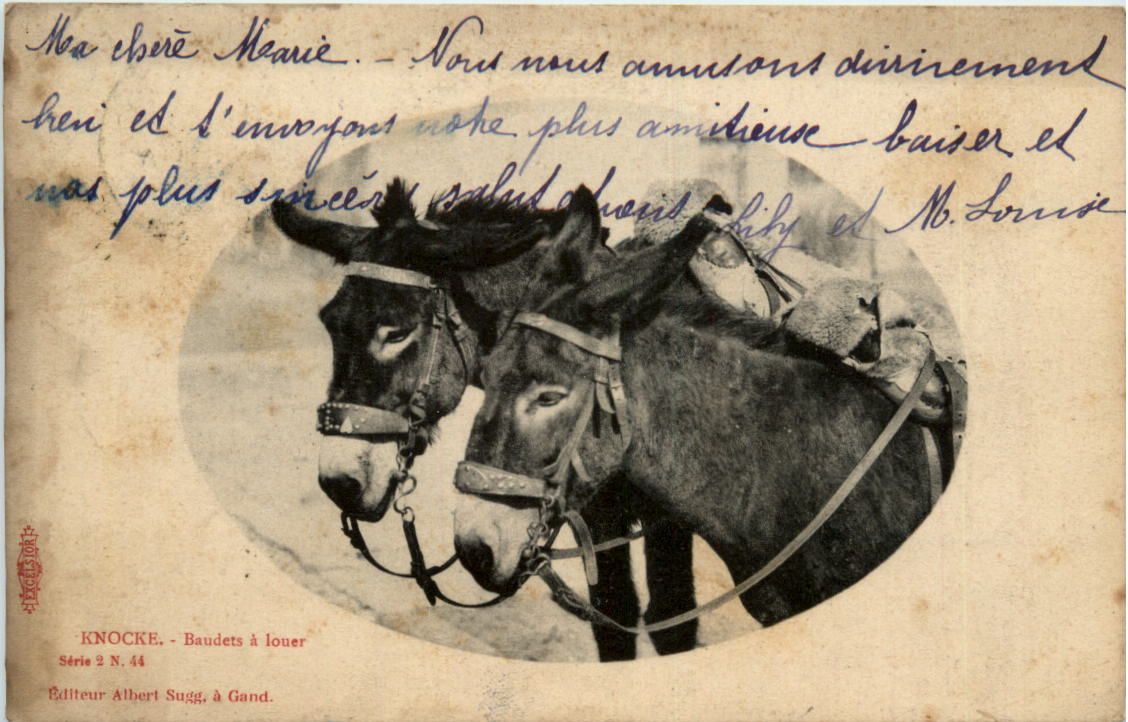 Ma cherè Marie. - Nous nous amusons divinement
bien et t'envoyons notre plus amitieuse baiser et
nos plus sincères salut Lily et M. Louise
EXCELSIOR
KNOCKE. - Baudets à louer
Série 2 N. 44
Éditeur Albert Sugg, à Gand.